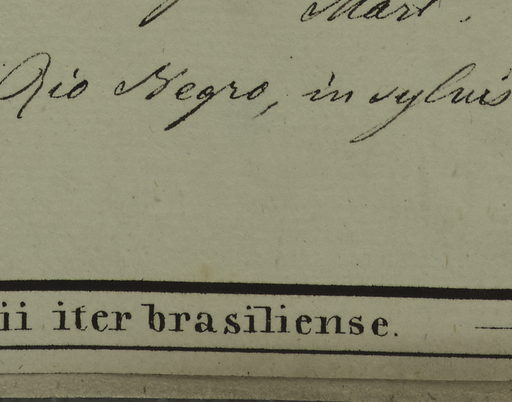 Mart.
Rio Negro, in sylvis
ii iter brasiliense.